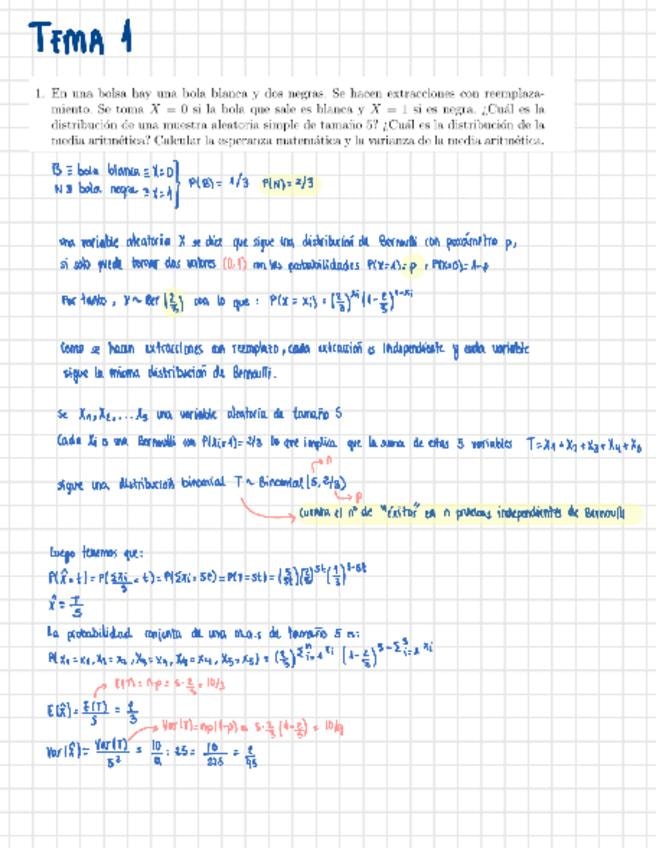 TEMA 1
1. En una bolsa hay una bola blanca y dos negras. Se hacen extracciones con reemplaza-
miento. Se toma X = 0 si la bola que sale es blanca y X = 1 si es negra. ¿Cuál es la
distribución de una muestra aleatoria simple de tamaño 5? ¿Cuál es la distribución de la
media aritmética? Calcular la esperanza matemática y la varianza de la media aritmética.
B ≡ bola blanca ≡ X=0
N ≡ bola negra ≡ X=1
P(B) = 1/3 P(N)=2/3
una variable aleatoria X se dice que sigue una distribución de Bernoulli con parámetro p,
si solo puede tomar dos valores (0,1) con las probabilidades P(X=1)=p y P(X=0)=1-p
Por tanto, X ~ Ber(2/3) con lo que : P(X = xi) = (2/3)^xi (1-2/3)^1-xi
Como se hacen extracciones con reemplazo, cada extracción es independiente y cada variable
sigue la misma distribución de Bernoulli.
Se X1, X2, ... X5 una variable aleatoria de tamaño 5
Cada Xi es una Bernoulli con P(Xi=1)=2/3 lo que implica que la suma de estas 5 variables T=X1+X2+X3+X4+X5
n
sigue una distribución binomial T ~ Binomial(5, 2/3)
p
cuenta el nº de "éxitos" en n pruebas independientes de Bernoulli
Luego tenemos que:
P(X̂=t) = P(Σxi/5 = t) = P(Σxi = 5t) = P(T=5t) = (5 5t)(2/3)^5t (1/3)^5-5t
X̂ = T/5
La probabilidad conjunta de una m.a.s de tamaño 5 es:
P(X1=x1, X2=x2, X3=x3, X4=x4, X5=x5) = (2/3)^Σi=1 xi (1-2/3)^5-Σ5i=1 xi
E(T) = n·p = 5·2/3 = 10/3
E(X̂) = E(T)/5 = 2/3
Var(T) = np(1-p) = 5·2/3 (1-2/3) = 10/9
Var(X̂) = Var(T)/5² = 10/9 : 25 = 10/225 = 2/45